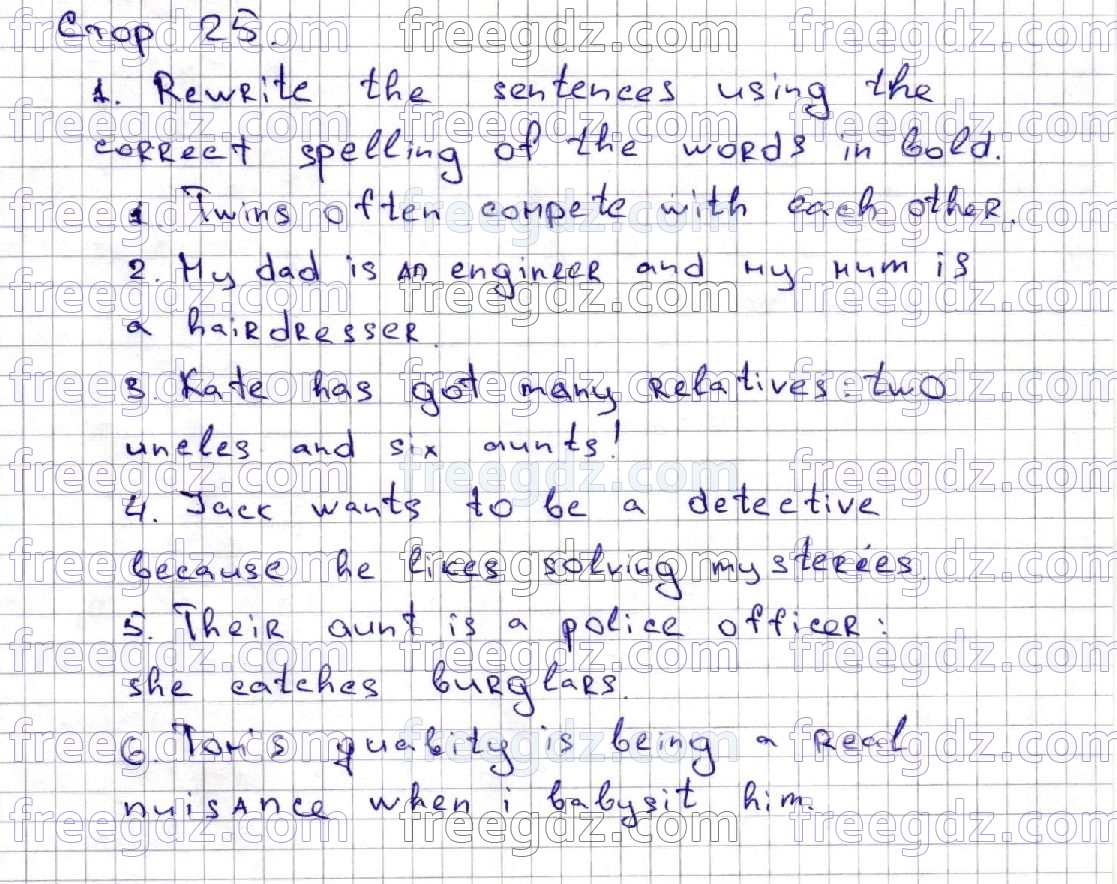 Стор 25.
1. Rewrite the sentences using the
correct spelling of the words in bold.
1. Twins often compete with each other.
2. My dad is an engineer and my mum is
a hairdresser.
3. Kate has got many relatives: two
uncles and six aunts!
4. Jack wants to be a detective
because he likes solving mysteries.
5. Their aunt is a police officer:
she catches burglars.
6. Tom's quality is being a real
nuisance when i babysit him.